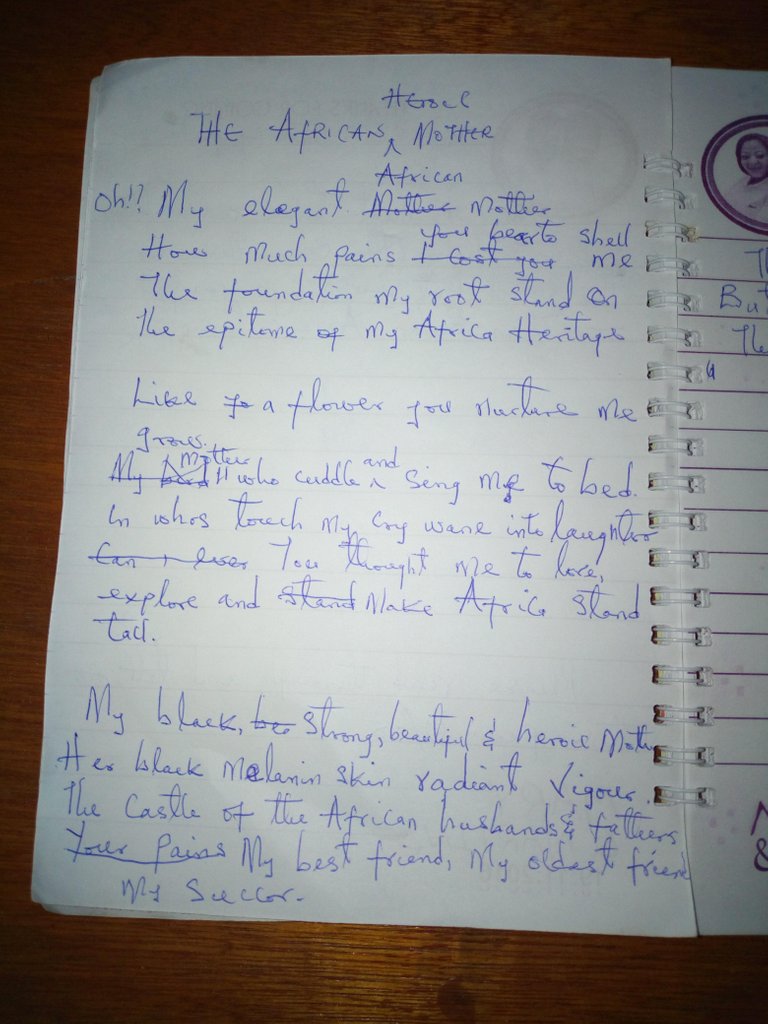 Heroic
THE AFRICAN ^ MOTHER
African
Oh!? My elegant Mother Mother
you bear to shell
How much pains I cost you me
The foundation my root stand On
The epitome of my Africa Heritage
Like a flower you nurture me
grow.
Mother and
My who cuddle ^ Sing me to bed.
In whos touch my Cry wane into laughter
Can I ever You thought Me to love,
explore and Stand Make Africa Stand
tall.
My black, strong, beautiful & heroic Moth
Her black Melanin Skin radiant Vigour.
The Castle of the African husbands & fathers
Your Pains My best friend, My oldest friend
My Succor.
Th
But
The